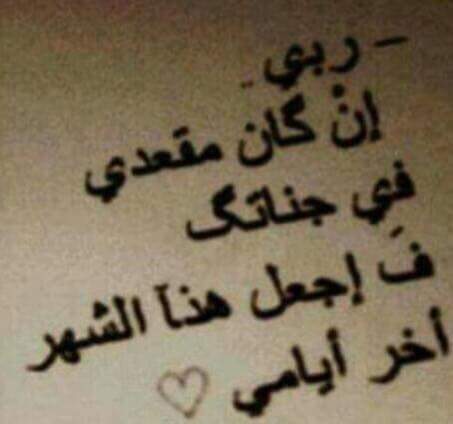 - ربي
إنْ گان مقعدي
في جناتگ
فَ إجعل هذآ الشهر
أخر أيامي ♡